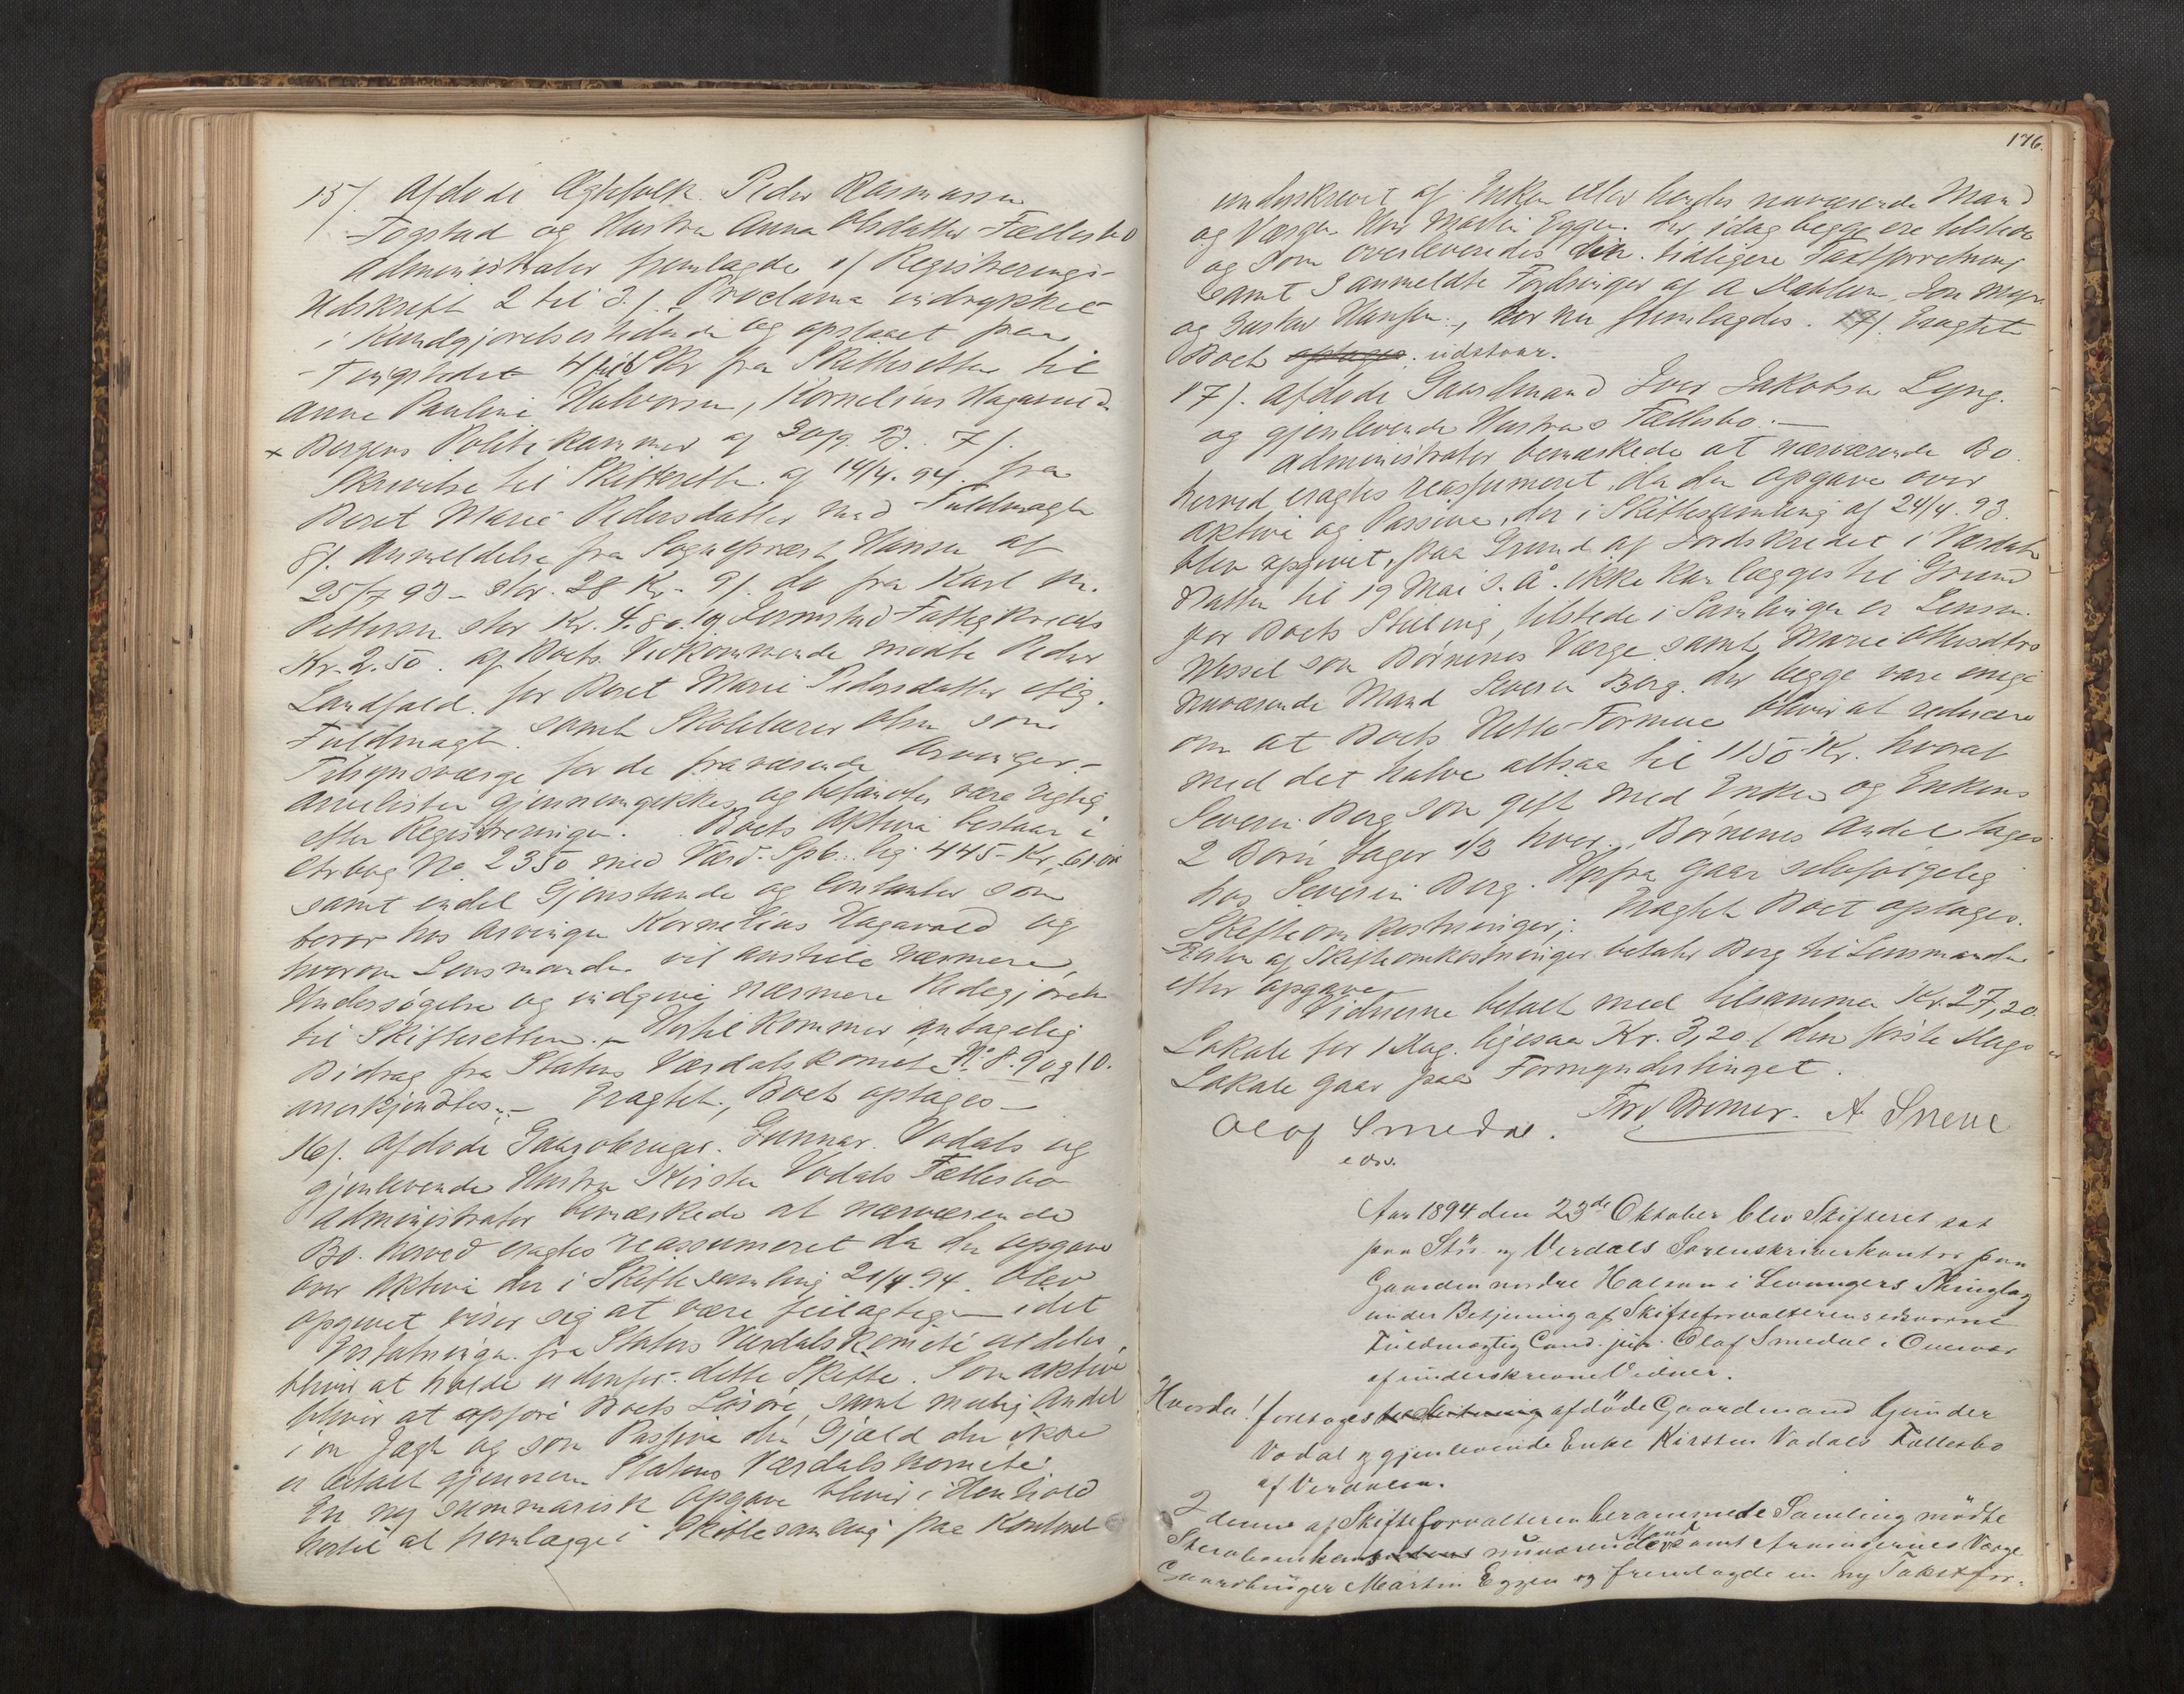 15/. Afdøde Ægtefolk Peder Rasmussen
Fogstad og Hustru Anna Olsdatter Fællesbo
Administrator fremlagde 1/ Registrerings-
Udskrift 2 til 3/. Proclama indrykket
i Kundgjørelsestidende og opslaaet paa
Tingstedet 4 til 6 Skr fra Skifteretten til
Anne Pauline Halvorsen, Kornelius Hagavold
x Bergens Politikammer af 30/9 93. 7/.
Skrivelse til Skifteretten af 14/4. 94. fra
Beret Marie Pedersdatter med Fuldmagt
8/. Anmeldelse fra Sogneprest Hansen af
25/7 93 - stor. 28 Kr. 9/. do fra Karl M.
Pettersen stor Kr. 4.80. 10/ Fattigkreds
Kr. 2.50. af Boets Vedkommende mødte Peder
Landfald for Beret Marie Pedersdatter iflg.
Fuldmagt. samt Skolelærer Olsen som
Tilsynsværge for de fraværende Arvinger.-
Arvelisten gjennemgikkes og befandtes være rigtig
efter Registreringen. Boets Aktiva bestaar i
Ctrbog No 2350 med Værd. Spb. lig 445- Kr, 61 øre
samt endel Gjenstande og Contanter som
beror hos Arvingen Kornelius Hagavold og
hvorom Lensmanden vil anstille nærmere
Undersøgelse og indgive nærmere Redegjørelse
til Skifteretten. - Hertil kommer antagelig
Bidrag fra Statens Værdalskomite No 8. 9 og 10.
anerkjendtes. - Eragtet, Boet optages -
16/. Afdøde Gaardbruger Gunnar Vodals og
gjenlevende Hustru Kirsten Vodals Fællesbo
Administrator bemærkede at nærværende
Bo. herved eragtes reassumeret da den opgave
over Aktiva der i Skiftesamling 21/4. 94. blev
opgivet viser sig at være feilagtig idet
Erstatningen fra Statens Værdalskomite aldeles
bliver at holde udenfor dette Skifte. Som aktiva
bliver at opføre Boets Løsøre, samt mulig Andel
i en Jagt og som Passiva den Gjæld der ikke
er betalt gjennem Statens Værdalskomite
En ny summarisk opgave bliver i Henhold
hertil at fremlægge i Skiftesamling paa Kontoret
176.
underskrevet af Enken eller hendes nuværende Mand
og Værgen Martin Eggen. der idag begge ere tilstede
og som overleveredes den tidligere Taxtforretning
samt 3 anmeldte Fordringer af A
og Gustav Hansen, der nu fremlagdes. 17/. Eragtet
Boet optages. udstaar.
17/. Afdøde Gaardmand Iver Jakobsen Lyng.
og gjenlevende Hustrus Fællesbo.-
Administrator bemærkede at nærværende Bo
herved eragtes reassumeret, da den opgave over
Aktiva og Passiva, der i Skiftesamling af 24/4. 93.
blev opgivet, paa Grund af Jordskredet i Værdalen
Natten til 19 Mai s. Å. ikke kan lægges til Grund
for Boets Stilling, tilstede i Samlingen er Lensm.
Wessel som Børnenes Værge samt Marie Ottersdtrs
nuværende Mand Severin Berg. der begge vare enige
om at Boets Netto-Formue bliver at reducere
med det halve altsaa til 1150 Kr. hvoraf
Severin Berg som gift med Enken og Enkens
2 Børn tager 1/3 hver. Børnenes Andel tages
hos Severin Berg. Herfra gaar selvfølgelig
Skifteomkostninger; Eragtet Boet optages.
Resten af Skifteomkostninger betaler Berg til Lensmanden
efter opgave
Vidnerne betalt med tilsammen Kr. 27,20.
Lokale for 1 Dag ligesaa Kr. 3,20. / den første Dags
Lokale gaar paa Formynderthinget.
Olaf Smedal. A Sneve
e dsv.
Aar 1894 den 23de Oktober blev Skifteret sat
paa Stør- og Verdals Sorenskriverkontor paa
Gaarden nordre Halsan i Levangers Thinglag
under Betjening af Skifteforvalterens edsvorne
Fuldmægtig Cand. jur. Olaf Smedal i Overvær
af underskrevne Vidner.
Hvorda! foretoges afdøde Gaardmand Gunder
Vodal og gjenlevende Enke Kirsten Vodals Fællesbo
af Verdalen.
I denne af Skifteforvalteren berammede Samling mødte
nuværende Mand samt Arvingernes Værge
Gaardbruger Martin Eggen og fremlagde en ny Takstfor-